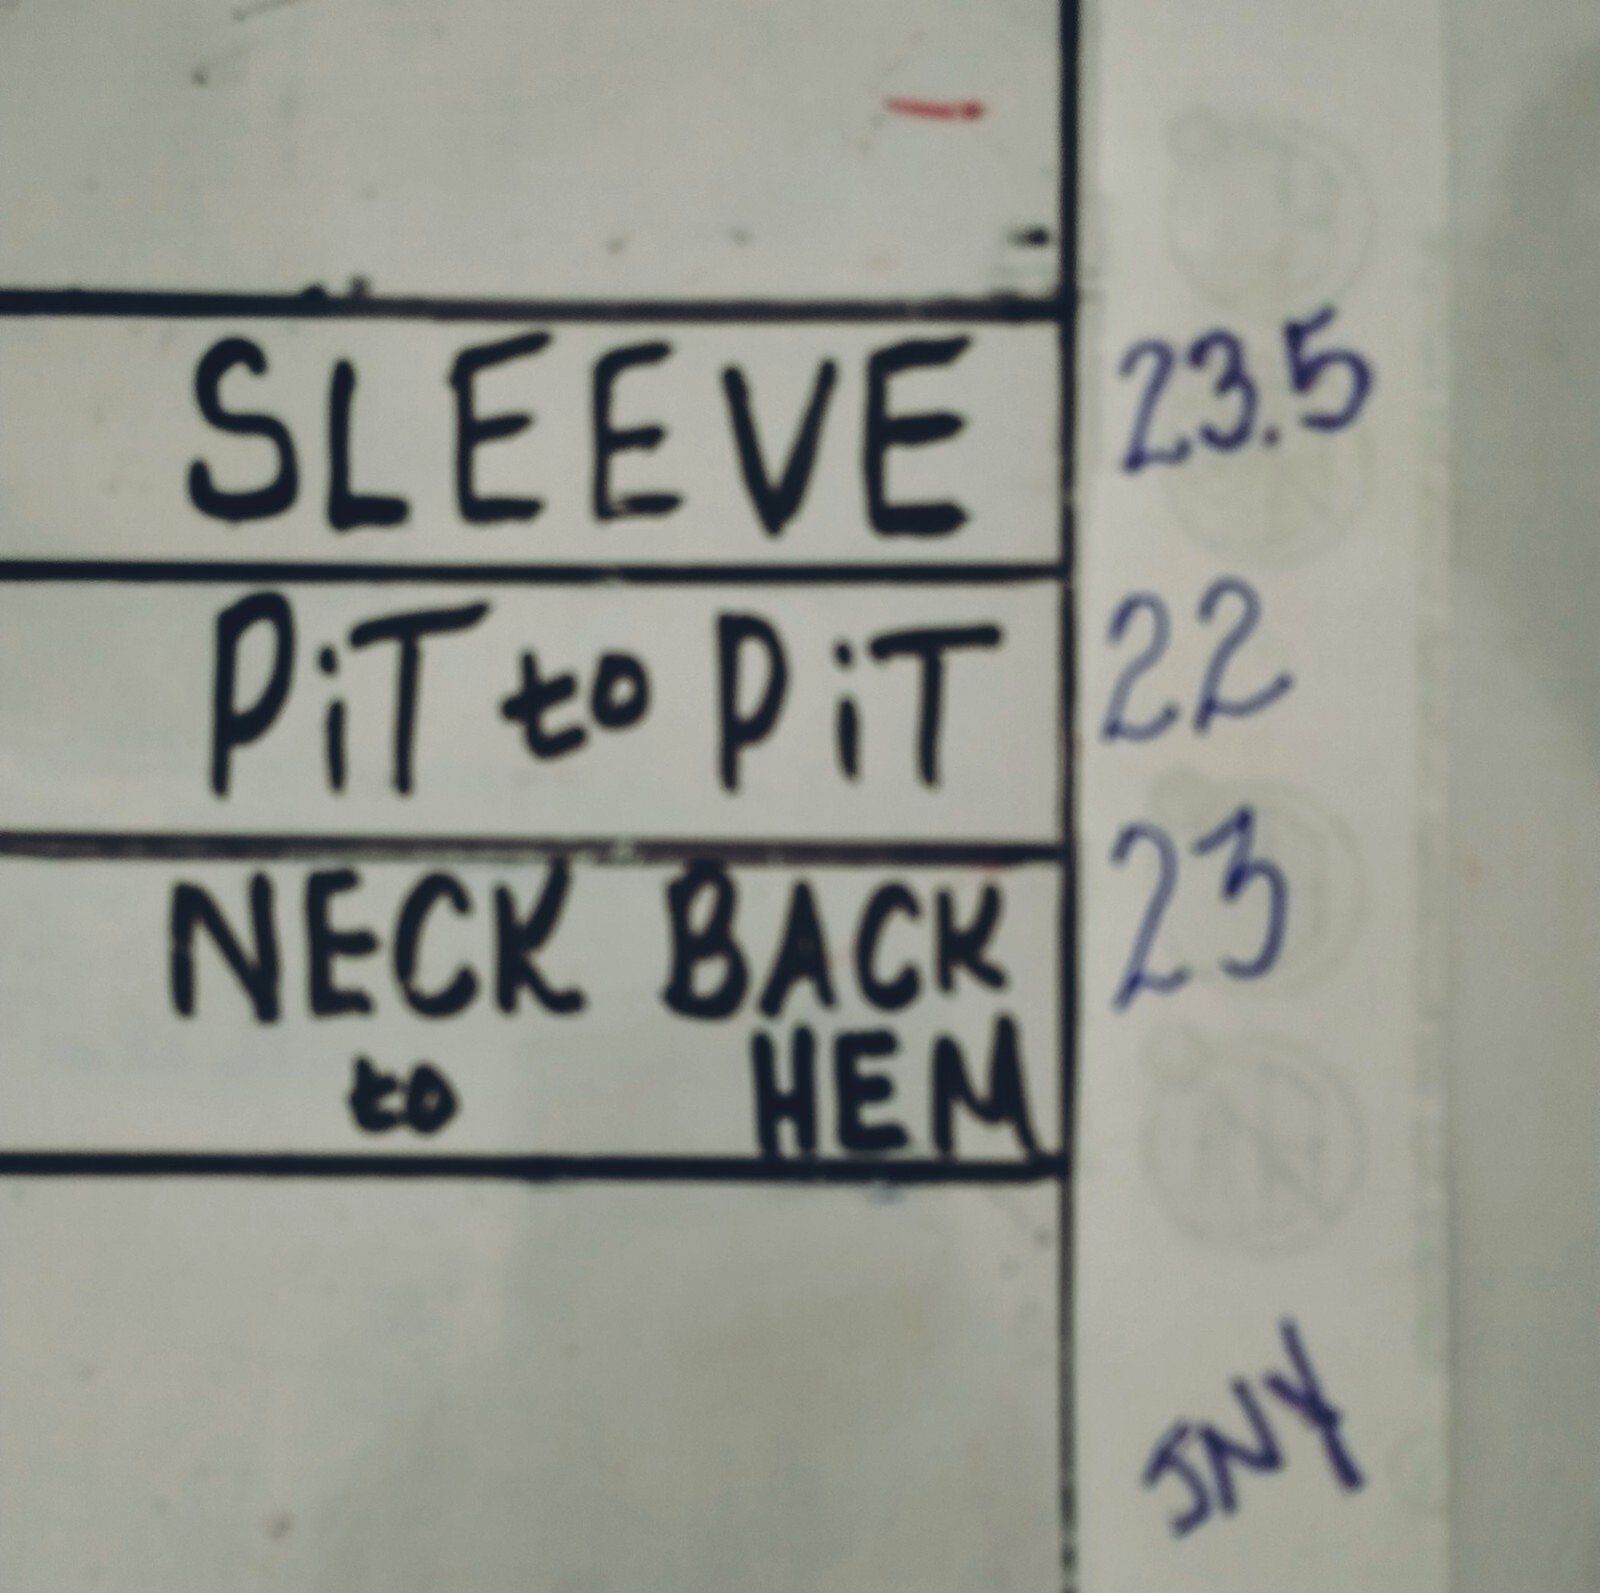 SLEEVE 23.5
PiT to PiT 22
NECK BACK 23
to HEM
JNY